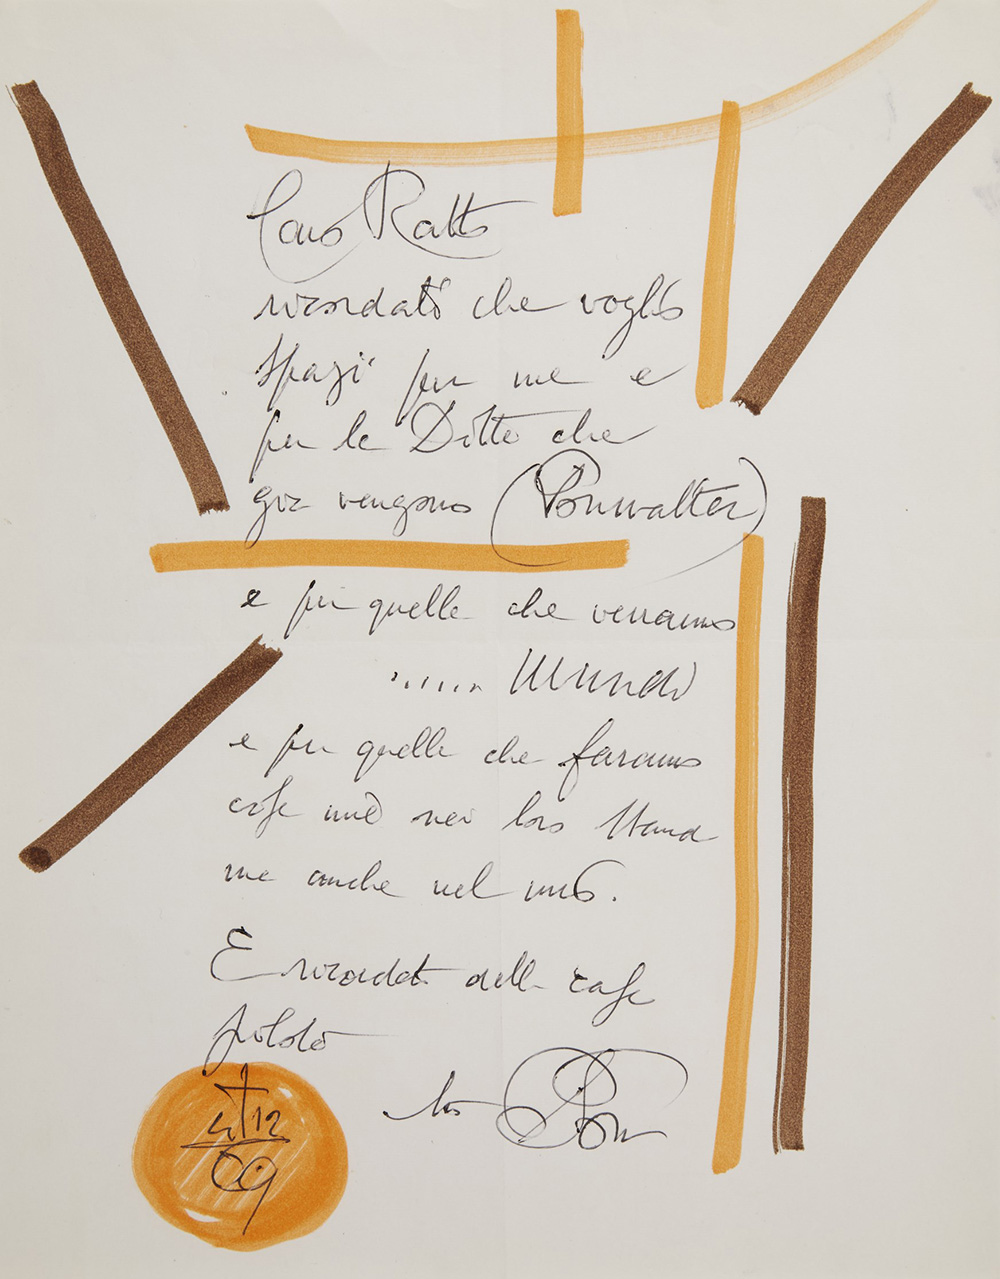 Caro Ratto
ricordati che voglio
spazi per me e
per le Ditte che
già vengono (Ponwalter)
e per quelle che verranno
...... Mundi
e per quelle che faranno
case mie nei loro Stand
me anche nel mio.
E ricordati delle case
pilota
tuo Pon
4 12
69